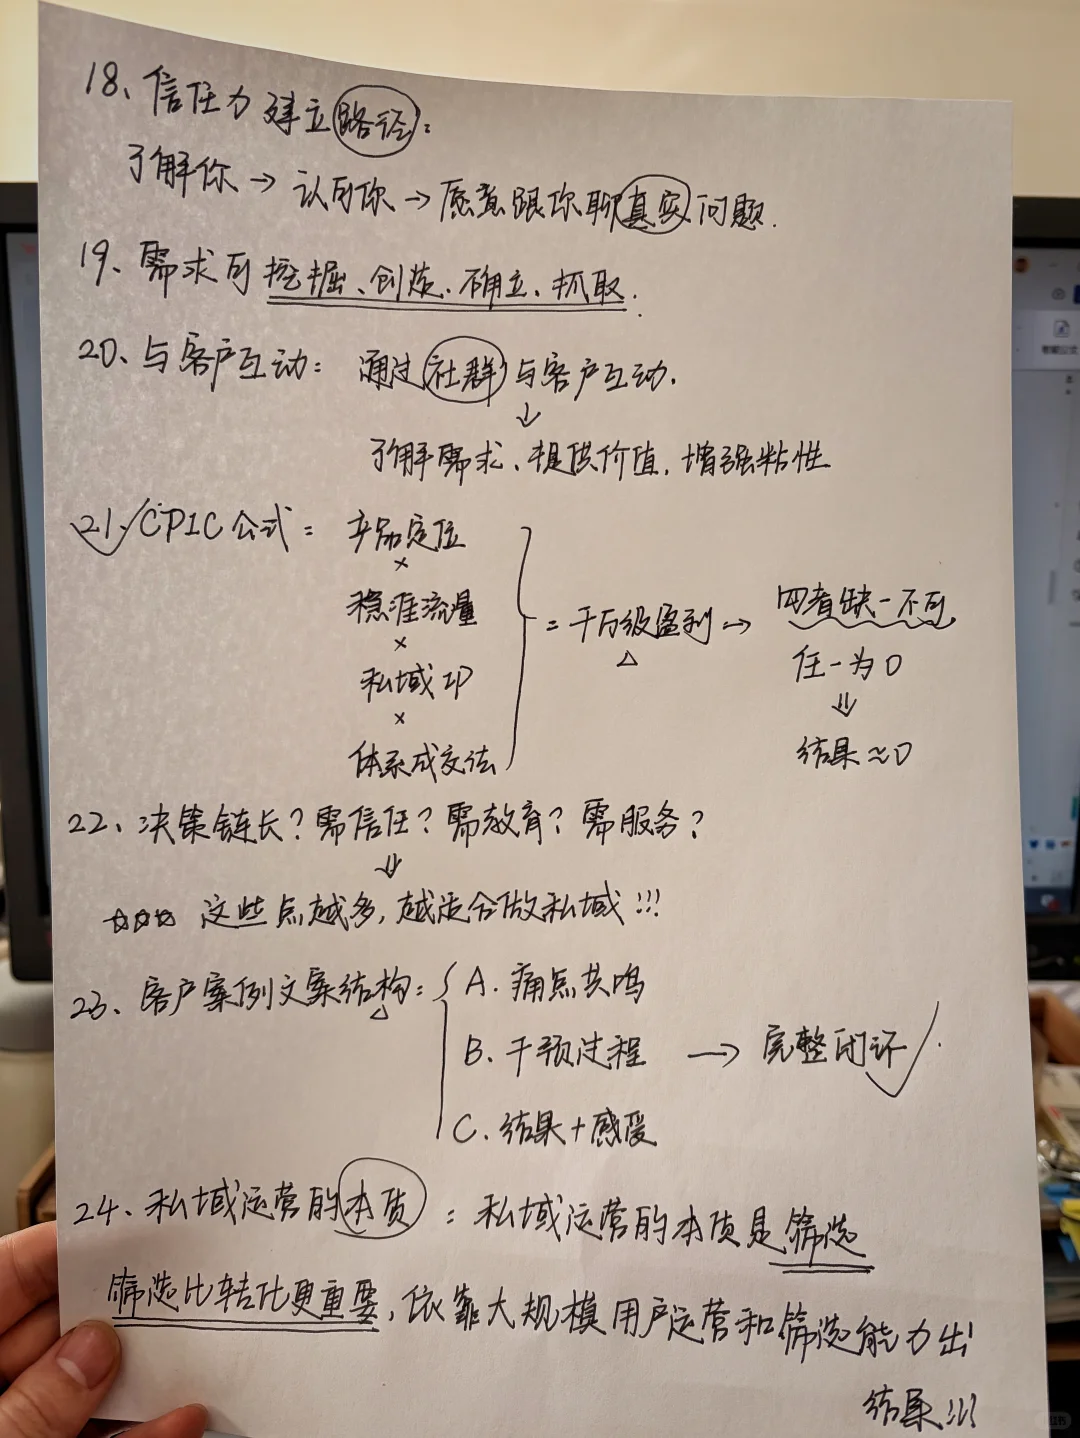 18、信任力建立路径：
了解你→认可你→愿意跟你聊真实问题.
19、需求可挖掘、创造、确立、抓取.
20、与客户互动：通过社群与客户互动.
↓
了解需求、提供价值，增强粘性
21、CPIC公式 = 产品定位
×
稳准流量
×
私域IP
×
体系成交法
= 千万级盈利→
四者缺一不可
任一为0
⇓
结果≈0
22、决策链长？需信任？需教育？需服务？
⇓
☆☆☆ 这些点越多，越适合做私域!!!
23、客户案例文案结构：
A. 痛点共鸣
B. 干预过程 → 完整闭环.
C. 结果+感受
24、私域运营的本质：私域运营的本质是筛选
筛选比转化更重要，依靠大规模用户运营和筛选能力出
结果!!!